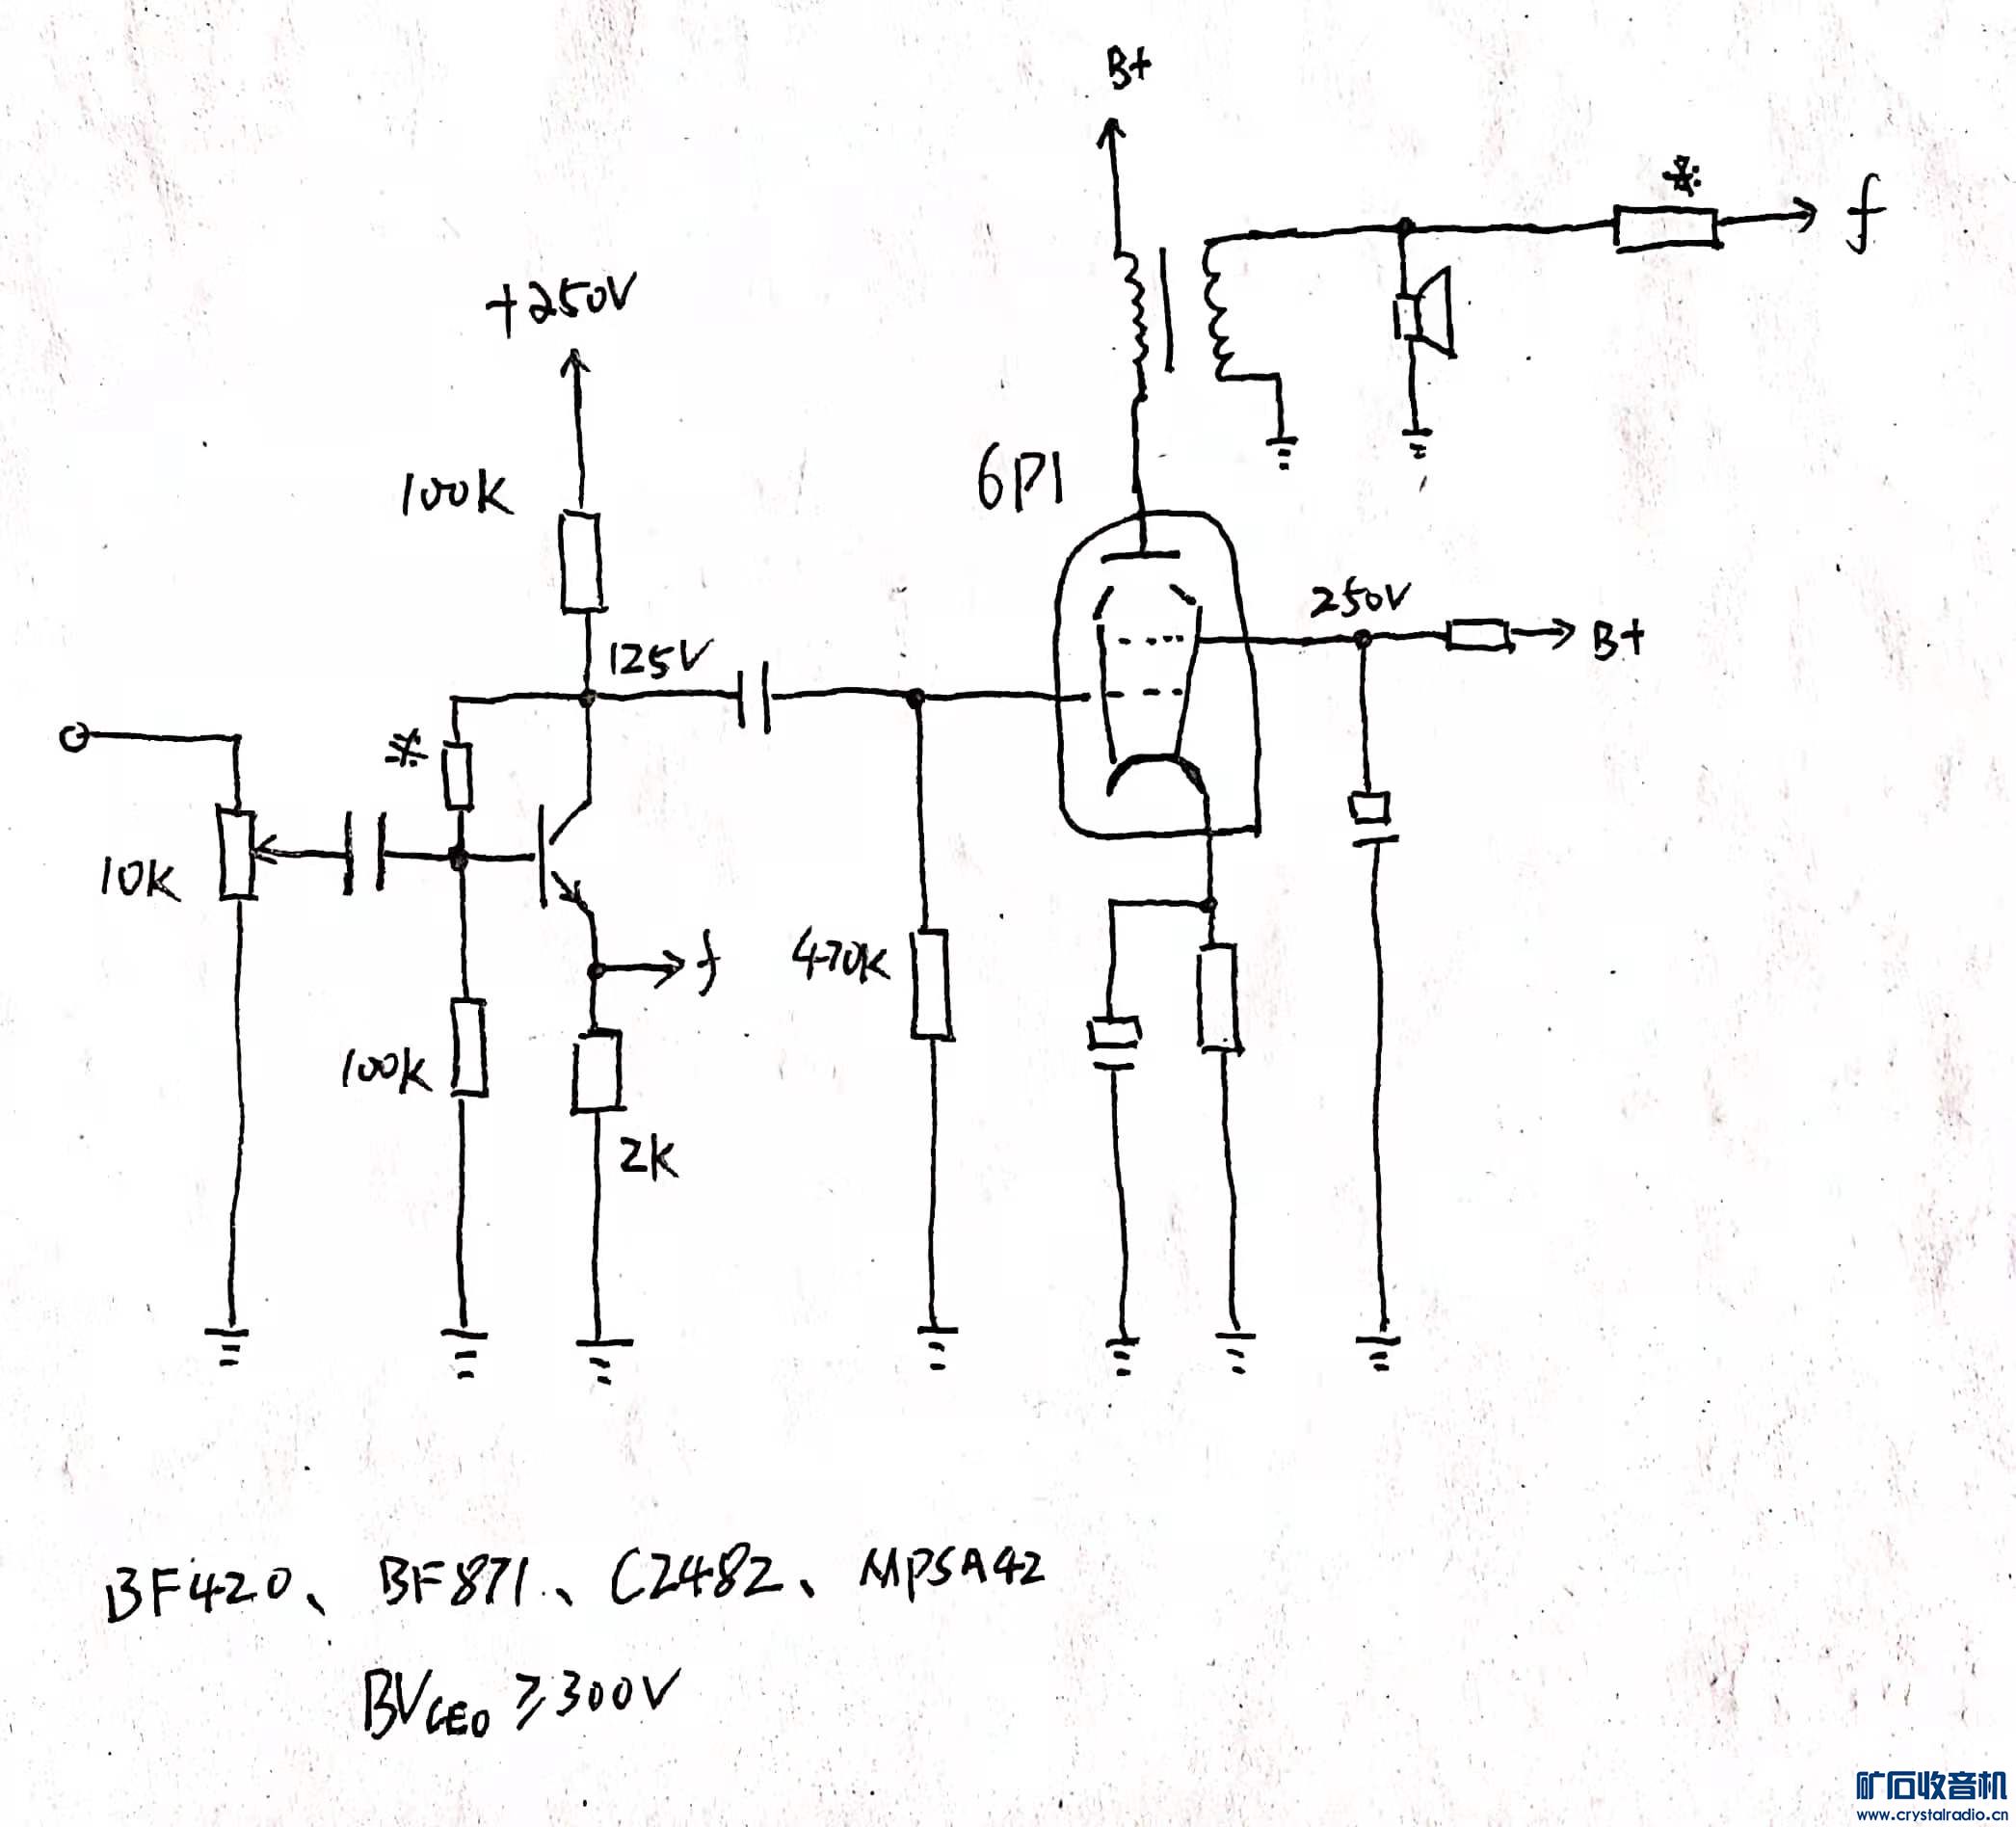 B+
※
f
+250V
100K
6P1
250V
B+
125V
※
10K
f
470K
100K
2K
BF420、BF871、C2482、MPSA42
BVCEO ≥300V
矿石收音机
www.crystalradio.cn